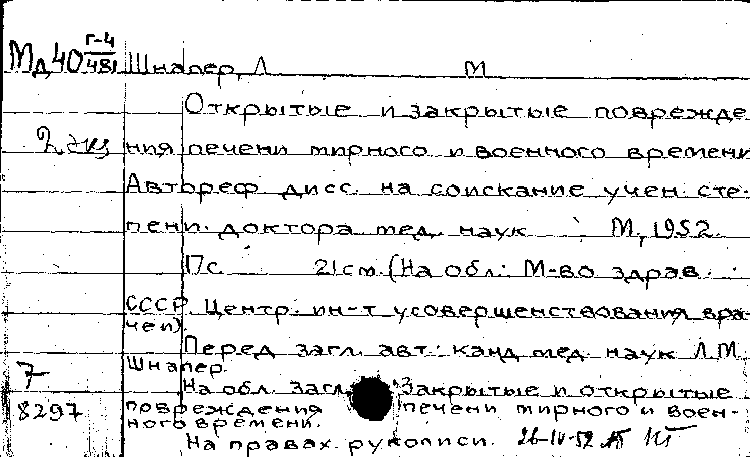 Мд40 Г-4/481 Шнапер, Л М
Открытые и закрытые поврежде
2 экз ния печени мирного и военного времени
Автореф дисс. на соискание учен. сте-
пени. доктора мед. наук М, 1952.
17с. 21см. (На обл.: М-во здрав.
СССР. Центр. ин-т усовершенствования вра-
чей).
Перед загл. авт.: канд мед. наук Л.М.
7 Шнапер.
На обл. загл. Закрытые и открытые
8297 повреждения печени мирного и воен-
ного времени.
На правах. рукописи. 26-IV-52